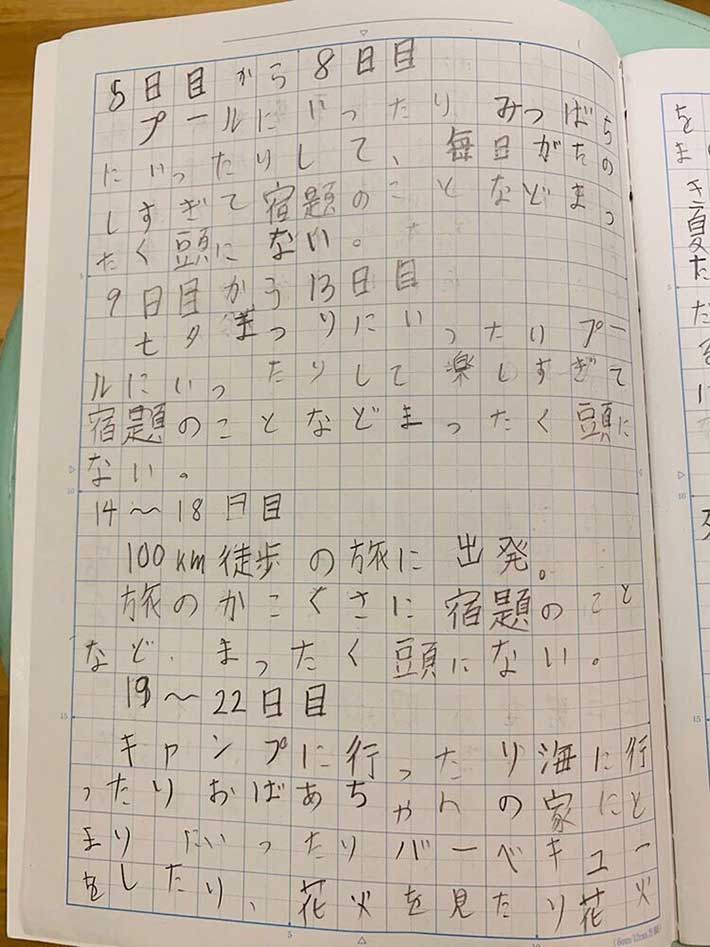 5日目から8日目
プールにいったり みつばち
にいったりして、毎日がたの
しすぎて宿題のことなどまっ
たく頭にない。
9日目から13日目
七夕まつりにいったいプー
ルにいったりして楽しすぎて
宿題のことなどまったく頭に
ない。
14〜18日目
100km徒歩の旅に出発。
旅のかこくさに宿題のこと
など、まったく頭にない。
19〜22日目
キャンプに行ったり海に行
ったりおばあちゃんの家にと
まりにいったりバーベキュー
をしたり、花火を見たり花火